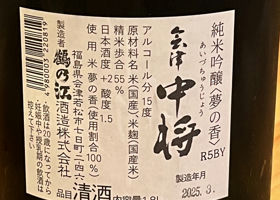 純米吟醸〈夢の香〉
R5BY
あいづちゅうじょう
会津
中将
製造年月
2025.3.
アルコール分 15度
原材料名 米(国産)、米麹(国産米)
精米歩合 55%
日本酒度 +2 酸度 1.5
使用米 夢の香(使用割合100%)
福島県会津若松市七日町二四六
製造者 鶴乃江酒造株式会社
・飲酒は20歳になってから
・妊娠中や授乳期の飲酒は控えて下さい
4980003220819
品目 清酒
内容量1.8L